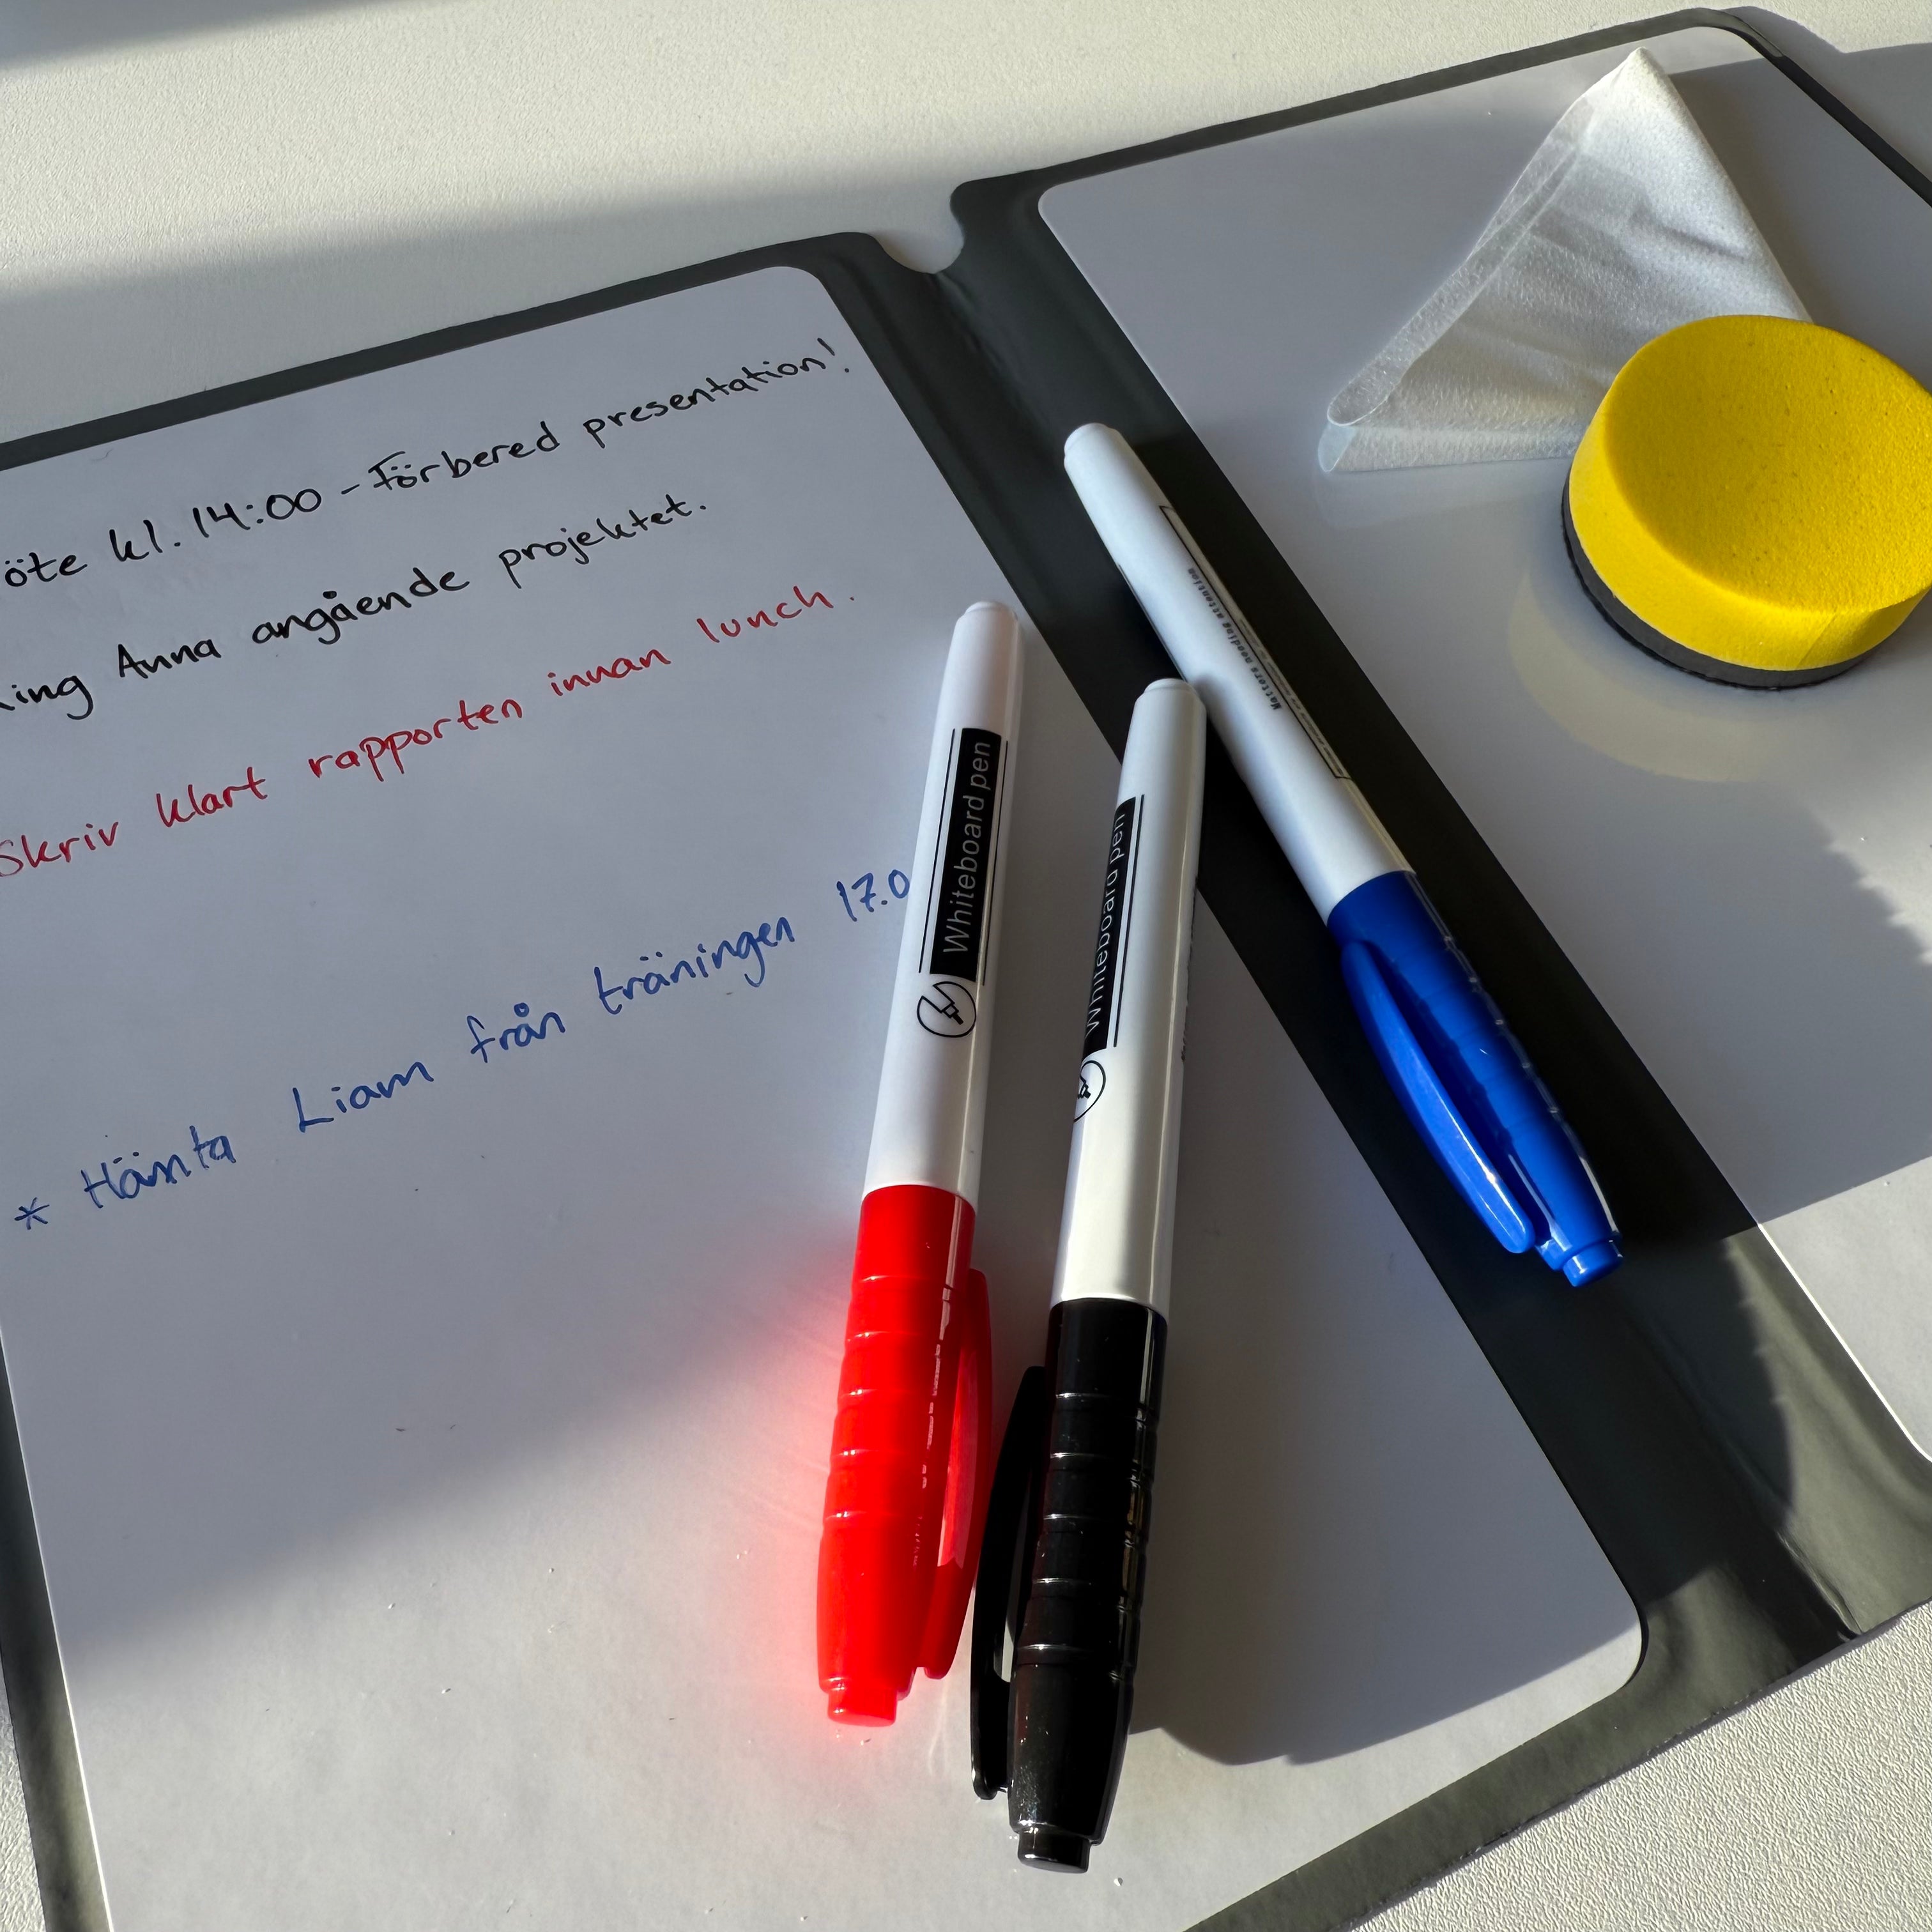 öte kl. 14:00 - Förbered presentation!
ing Anna angående projektet.
Skriv klart rapporten innan lunch.
* Hämta Liam från träningen 17.0
Whiteboard pen
Whiteboard pen
Matters needing attention